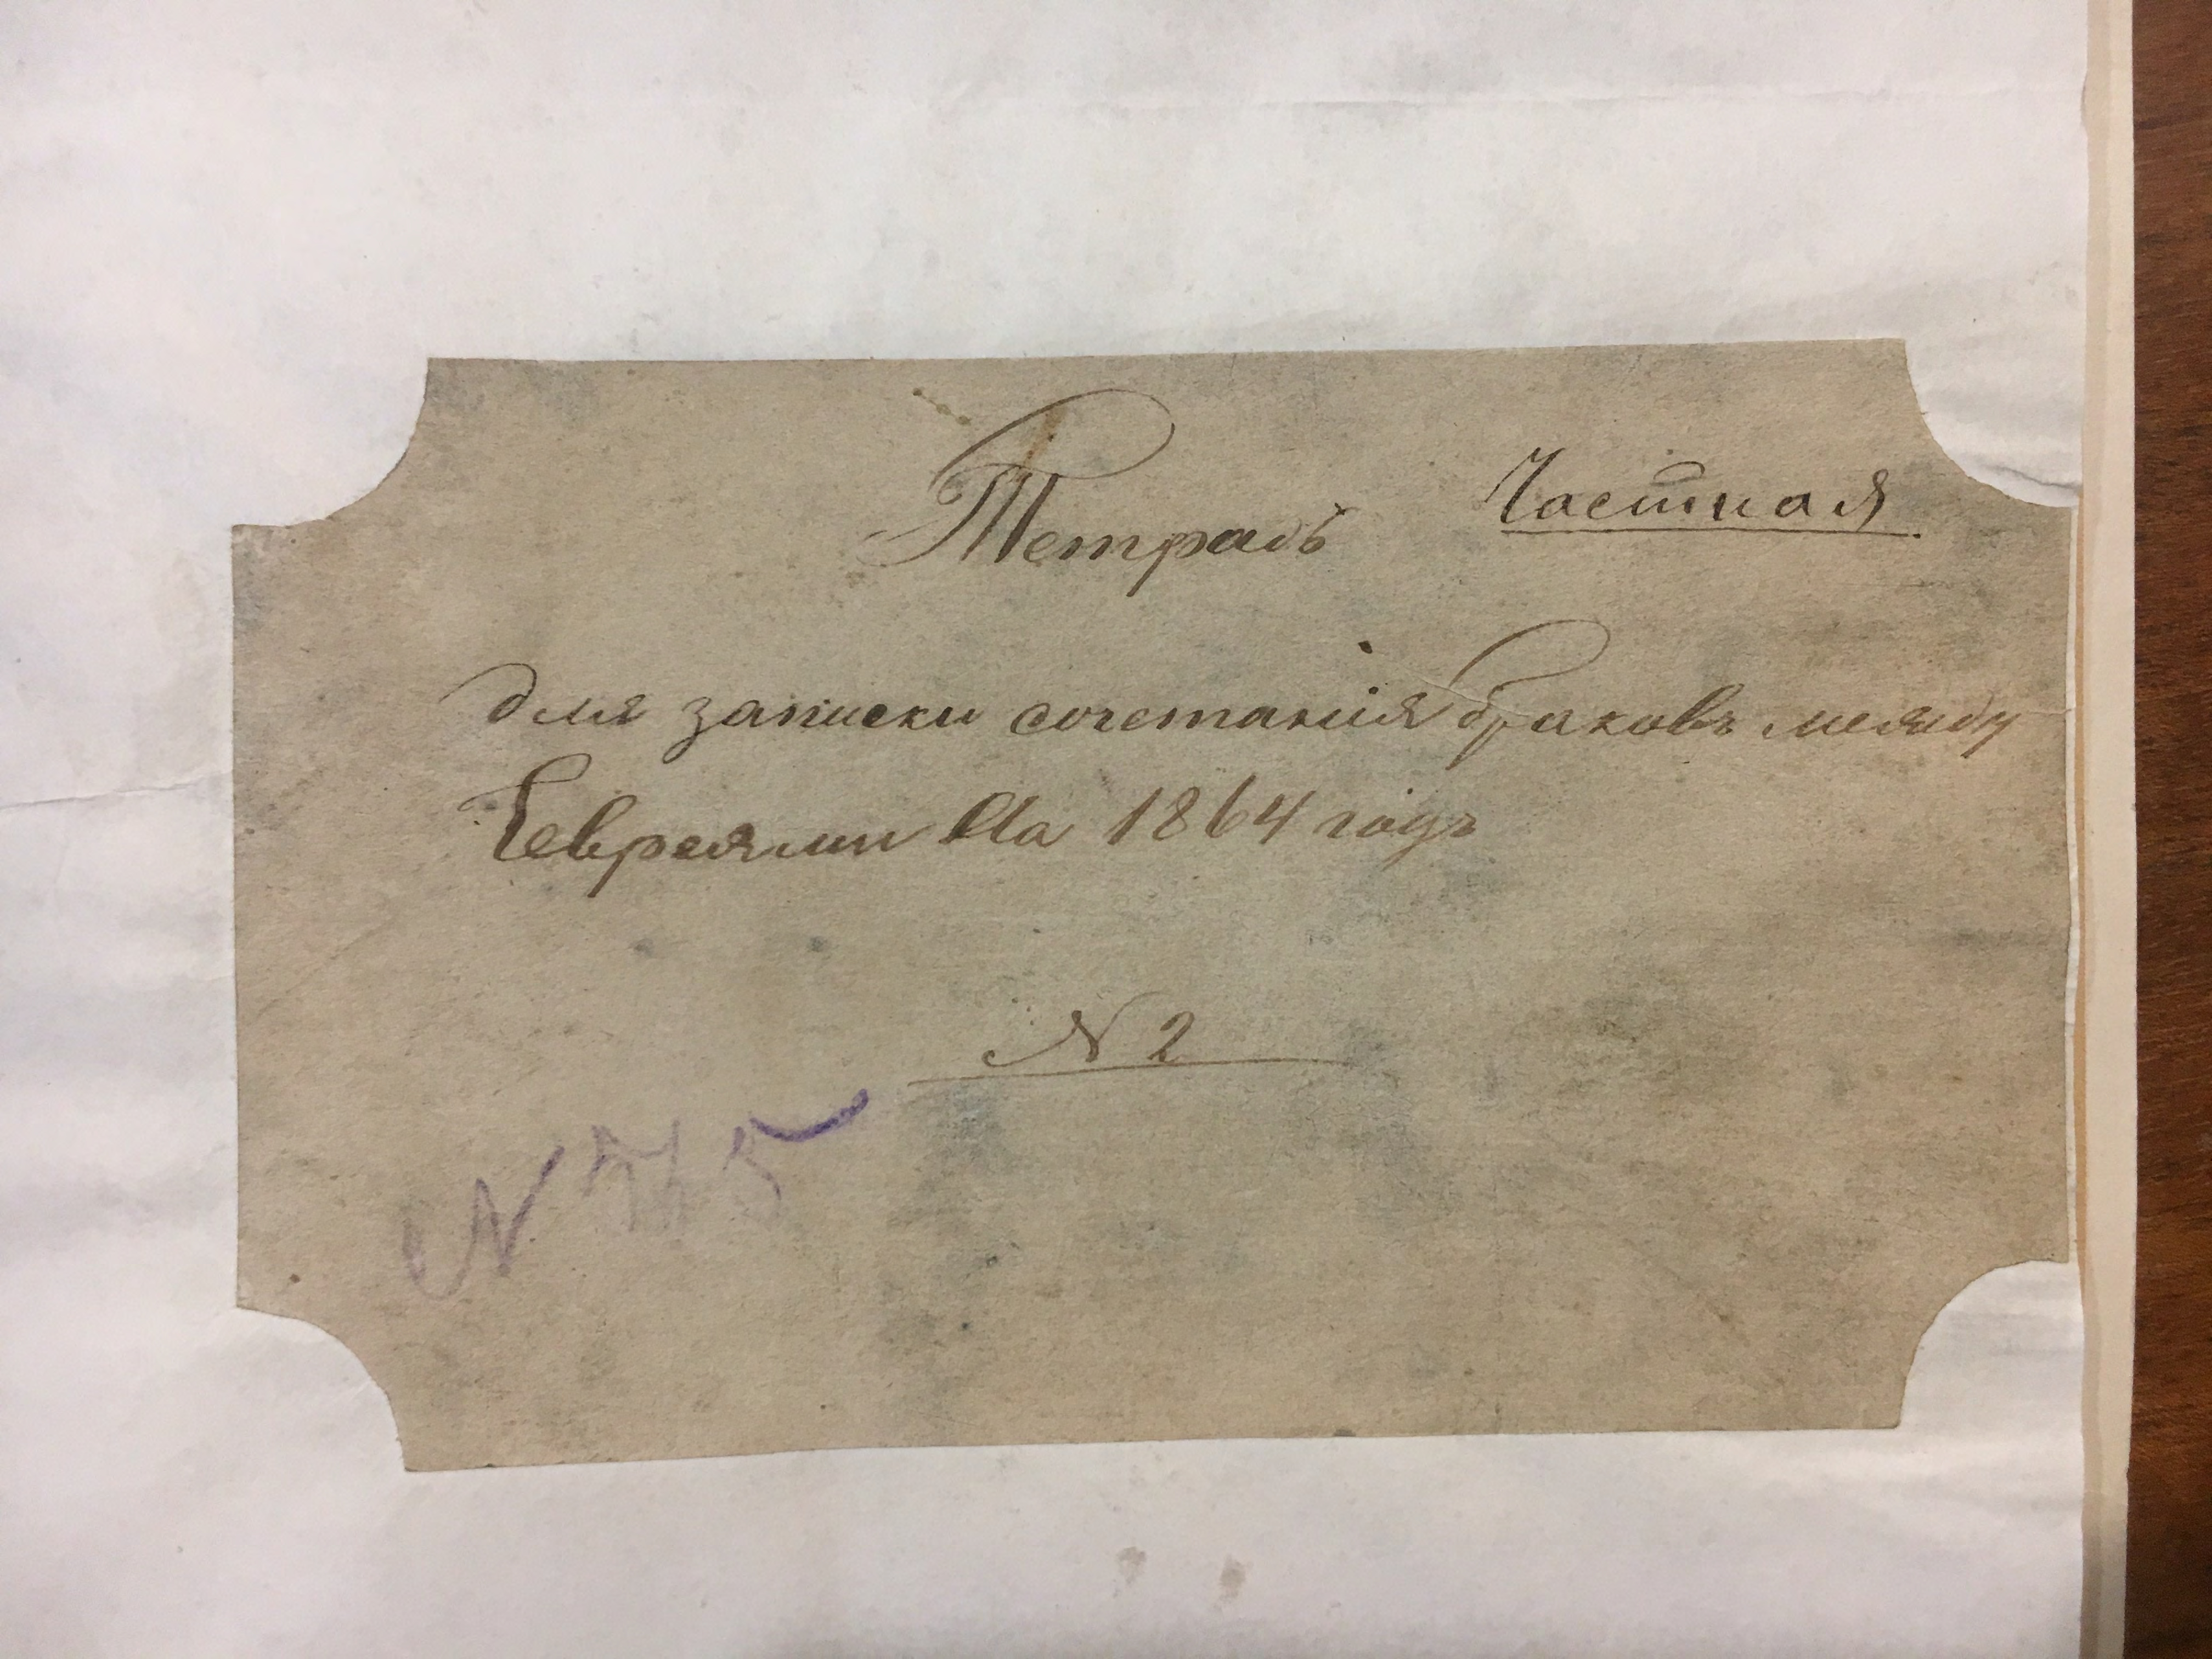 Тетрадь Частная
для записки сочетанія браковъ между
Евреями На 1864 годъ
N 2
N